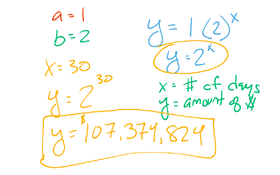 a = 1
b = 2
y = 1(2)^x
y = 2^x
x = 30
y = 2^30
x = # of days
y = amount of $
y = $107,374,824